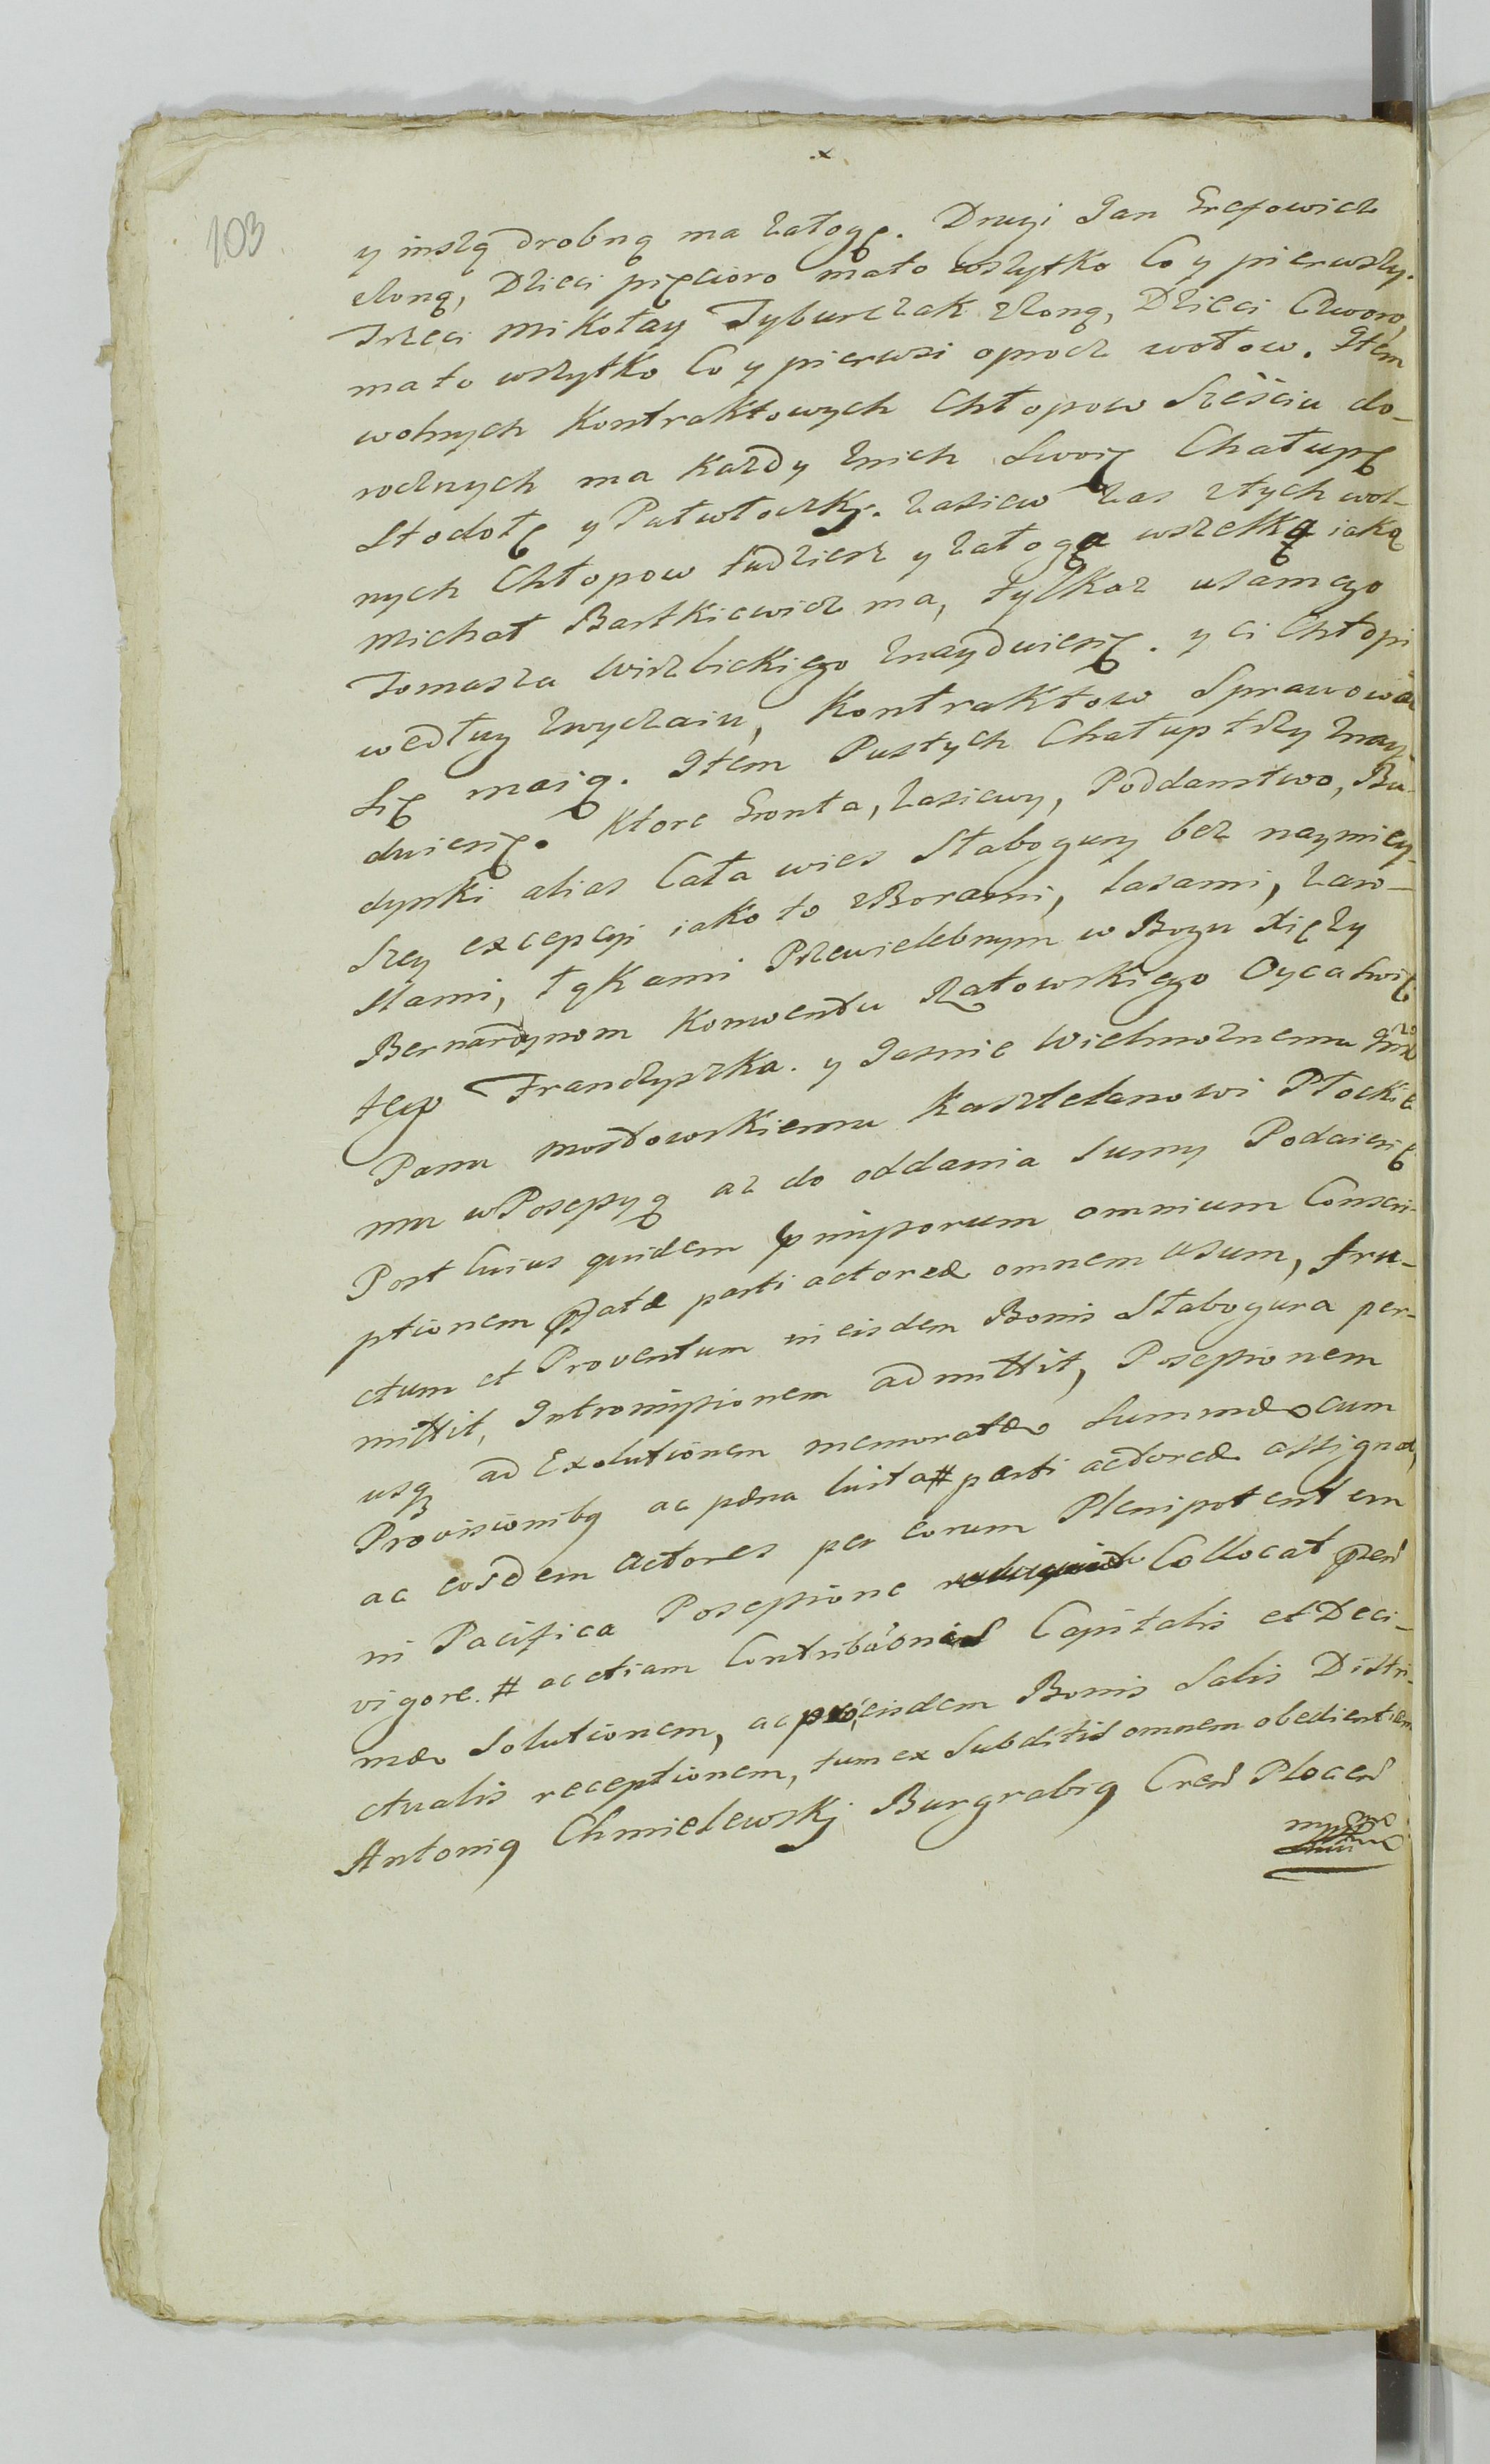 x
103
y inszą drobną ma załogę. Drugi Jan Grefowicz
zżoną, Dzieci pięcioro ma to wszytko Co y pierwszy.
Trzeci Mikołay Tyburczak zżoną, Dzieci Czworo,
ma to wszytko Co y pierwsi oprocz wołow. Item
wolnych Kontraktowych Chłopow Sześciu do-
rocznych ma Każdy znich Swoię Chałupę
Stodołę y Pułwłoczky. zasiew zas ztych wol-
nych Chłopow tudziesz y załogą wszelką iaką
Michał Bartkiewicz ma, tylkaz usamego
Tomasza Wirzbickiego znayduiesię. y ci Chłopi
według zwyczaiu, Kontraktow Sprawować
Się maią. Item Pustych Chałup trzy znay-
duiesię. Ktore Gronta, zasiewy, Poddanstwo, Bu-
dynki alias Cała wies Stabogury bez naymiey-
Szey excepcyi iako to zBorami, lasami, zaro-
slami, łąkami Przewielebnym w Bogu Xięży
Bernardynom Konwentu Ratowskiego Oyca Swię
tego Franczyszka. y Jasnie Wielmożnemu
Panu Mostowskiemu Kasztelanowi Płockie
mu w Posessyą az do oddania Sumy Podaiesię
Post Cuius quidem pmissorum omnium Conscri-
ptionem pfatæ parti actoreæ omnem usum, fru-
ctum et Proventum in eisdem Bonis Stabogura per-
mittit, Intromissionem admittit, Possessionem
usq ad Exolutionem memoratæ Summæ cum
Provisionibq ac pæna luita # parti actoreæ assignat,
ac eosdem actores per eorum Plenipotentem
in Pacifica Possessione Collocat pen
vigore. # ac etiam Contribuonis Capitalis et Deci-
mæ Solutionem, ac pro eisdem Bonis Salis Distri-
ctualis receptionem, tum ex Subditis omnem obedientiem
Antoniq Chmielewskj Burgrabiq Cren Plocen
mpp